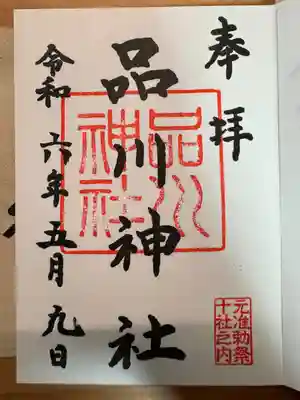 奉拝
元准勅祭
十社之内
品川神社
品川
神社
令和六年五月九日